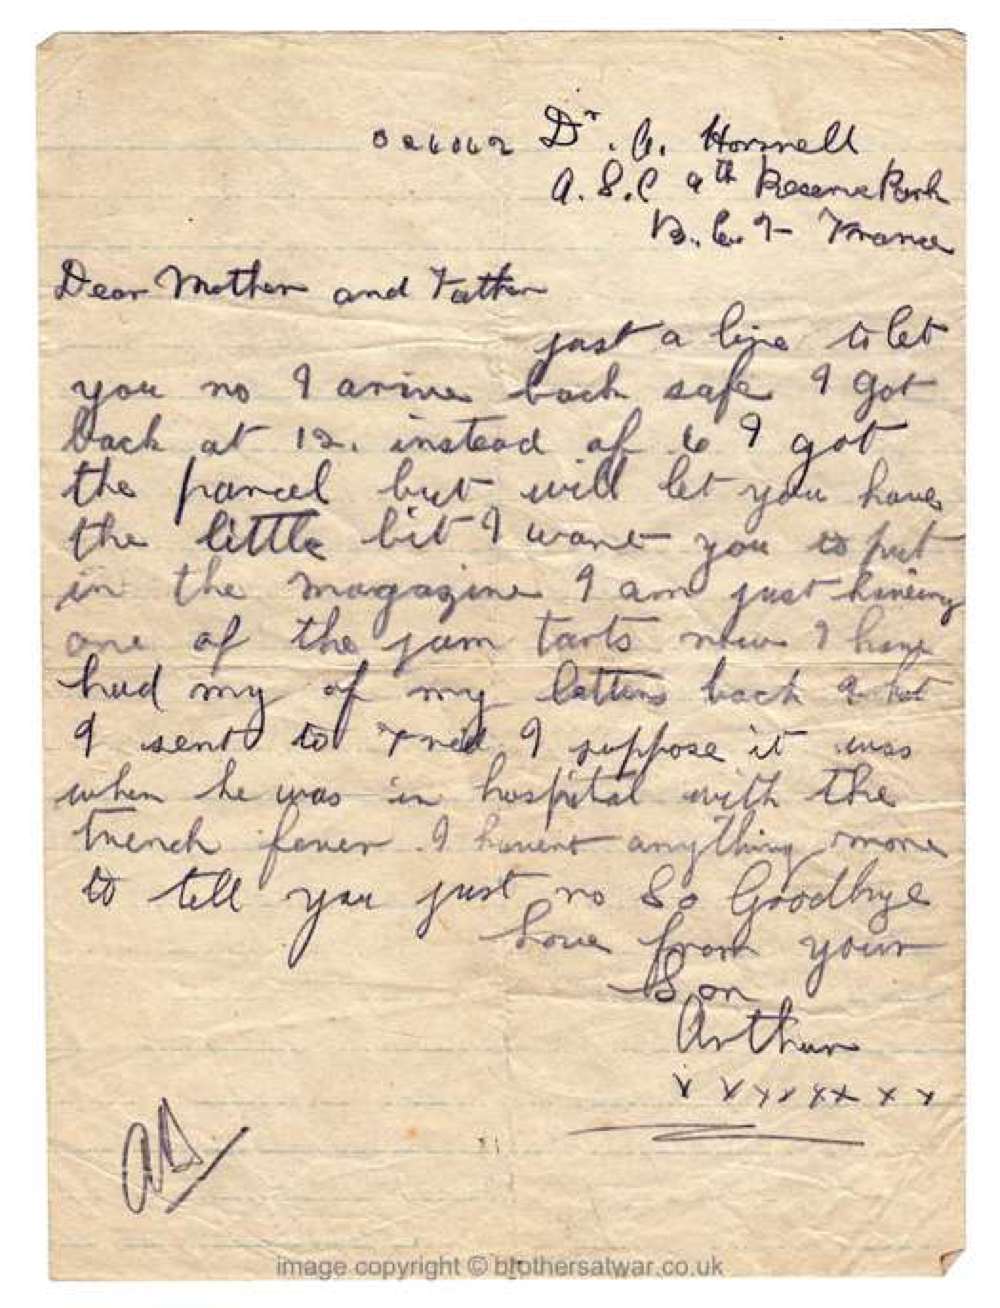 026042 Dr. A. Horsnell
A.S.C 9th Reserve Park
B.E.F France
Dear Mother and Father
just a line to let
you no I arive back safe I got
back at 12. instead of 6 I got
the parcel but will let you have
the little bit I want you to put
in the magazine I am just haveing
one of the jam tarts now I have
had my of my letters back what
I sent to Fred I suppose it was
when he was in hospital with the
trench fever. I havent anything more
to tell you just no So Goodbye
Love from your
Son
Arthur
x x x x x x x x
image copyright © brothersatwar.co.uk